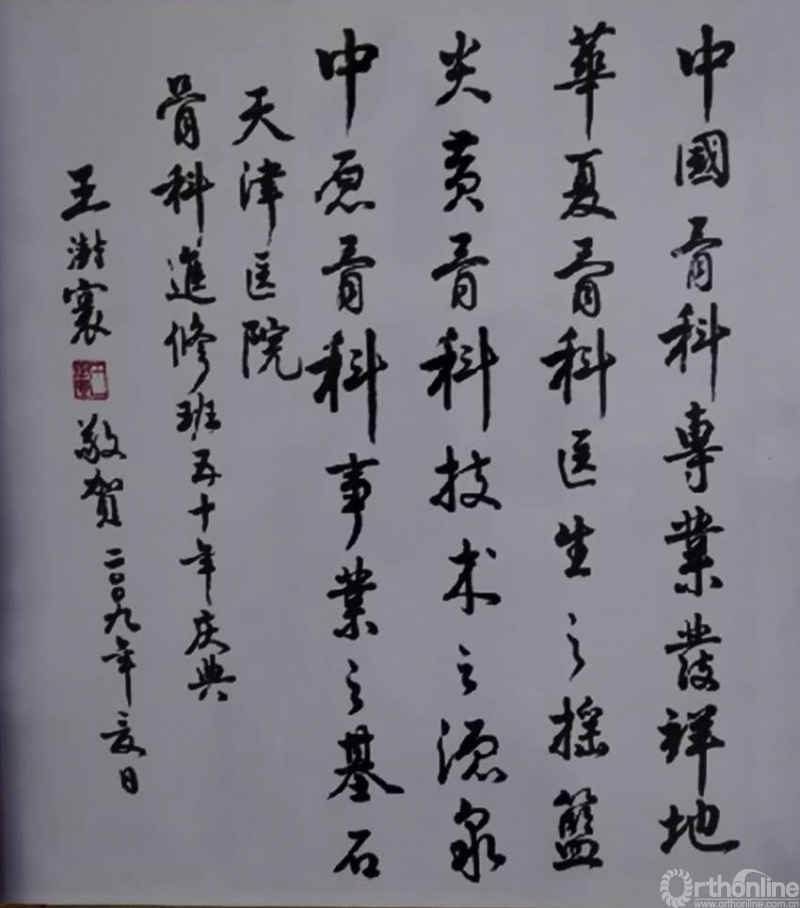 中國骨科專業發祥地
華夏骨科医生之摇籃
炎黄骨科技术之源泉
中原骨科事業之基石
天津医院
骨科進修班五十年庆典
王澍寰
敬贺二〇〇九年夏日
Orthonline
www.orthonline.com.cn